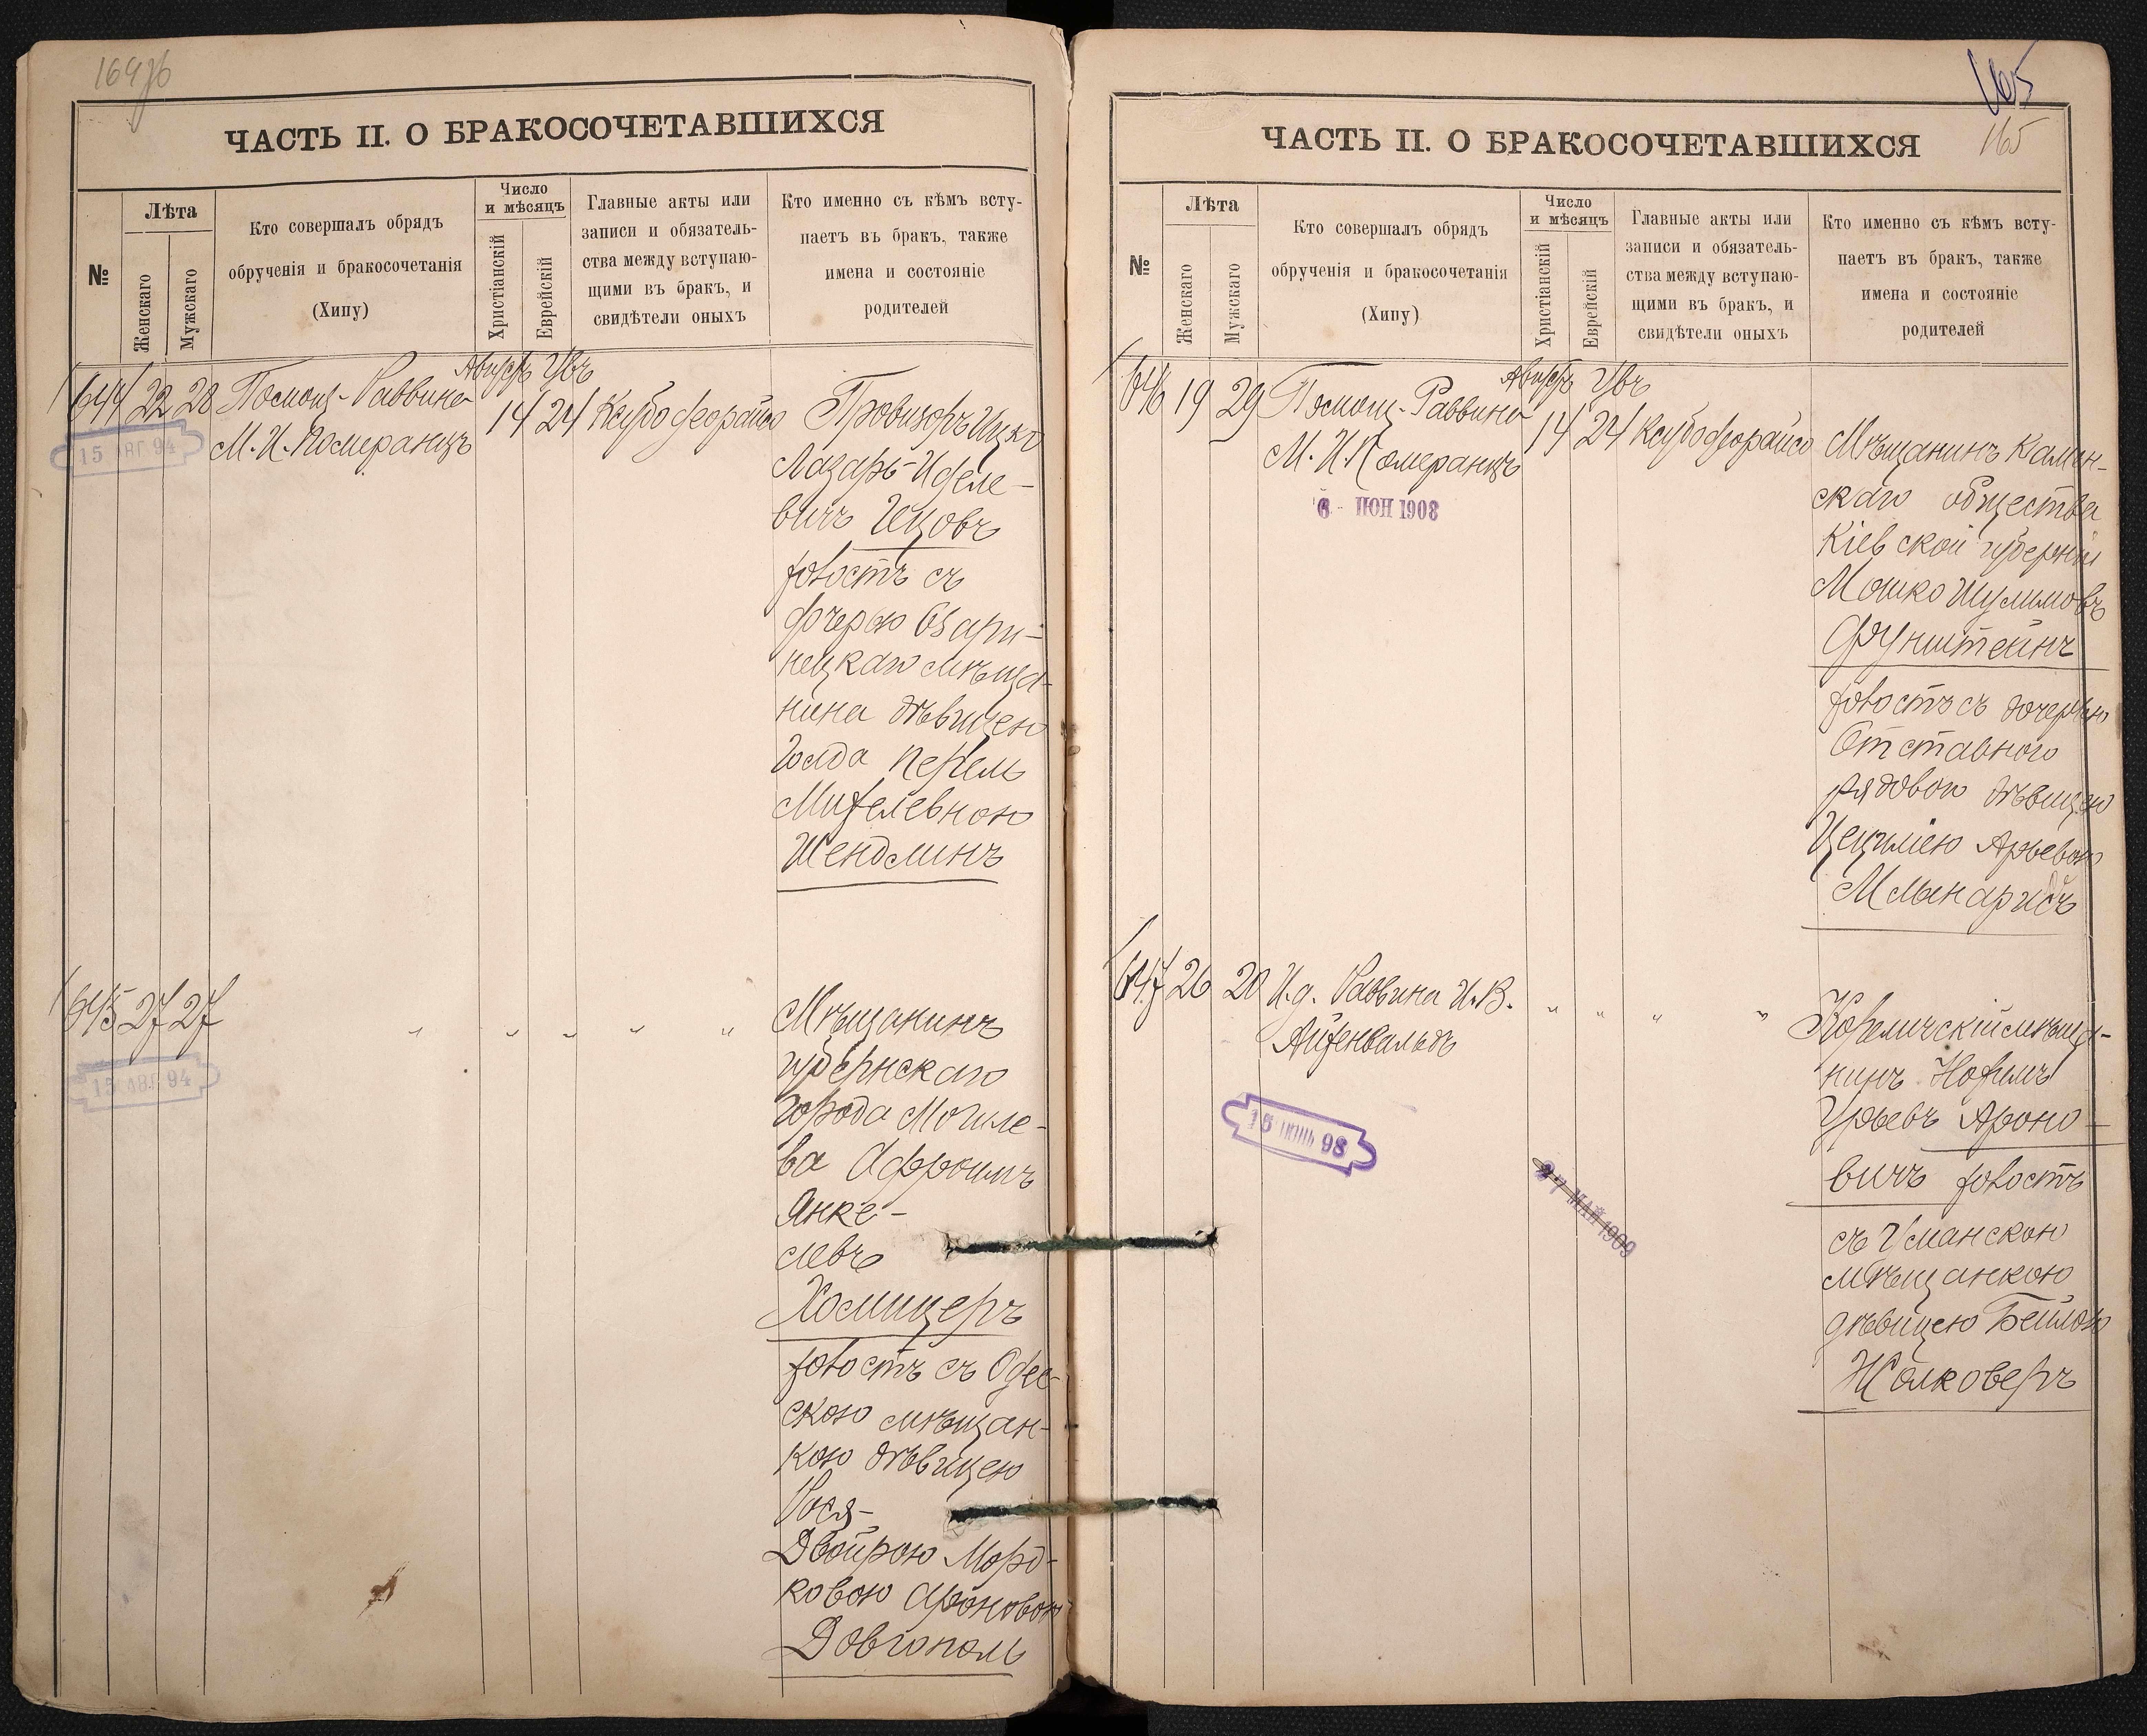 ЧАСТЬ II. О БРАКОСОЧЕТАВШИХСЯ
№
Лѣта
Женскаго
Мужскаго
Кто совершалъ обрядъ
обрученія и бракосочетанія
(Хипу)
Число
и мѣсяцъ
Христіанскій
Еврейскій
Главные акты или
записи и обязатель-
ства между вступаю-
щими въ бракъ, и
свидѣтели оныхъ
Кто именно съ кѣмъ всту-
паетъ въ бракъ, также
имена и состояніе
родителей
644 22 28
Помощ. Раввина
М. И. Померанцъ
Августъ
14 24
15 АВГ. 94
Провизоръ Ицко
Лазарь-Иделе-
вичъ Ицовъ
холостъ съ
дочерью Озари-
нецкаго мѣща-
нина дѣвицею
Голда Перель
Михелевною
Шендлинъ
645 27 27
" " " " "
15 АВГ. 94
Мѣщанинъ
губернскаго
города Могиле-
ва Афроимъ
Янке-
левъ
Хомицеръ
холостъ съ Одес-
скою мѣщан-
кою дѣвицею
Рося-
Двойрою Морд-
ковою Ароновою
Довгополь
ЧАСТЬ II. О БРАКОСОЧЕТАВШИХСЯ
165
165
№
Лѣта
Женскаго
Мужскаго
Кто совершалъ обрядъ
обрученія и бракосочетанія
(Хипу)
Число
и мѣсяцъ
Христіанскій
Еврейскій
Главные акты или
записи и обязатель-
ства между вступаю-
щими въ бракъ, и
свидѣтели оныхъ
Кто именно съ кѣмъ всту-
паетъ въ бракъ, также
имена и состояніе
родителей
646 19 29
Помощ. Раввина
М. И. Померанцъ
Августъ
14 24
6 - ІЮН 1908
Мѣщанинъ Камен-
скаго общества
Кіевской губерніи
Мошко Шулимовъ
Фунштейнъ
холостъ съ дочерью
Отставного
рядового дѣвицею
Цецилею Арьевою
Млынаридъ
647 26 20
И.д. Раввина И. В.
Айзенвальдъ
" " " "
98
27 МАЙ 1909
Корелическій мѣща-
нинъ Нохимъ
Урьевъ Ароно-
вичъ холостъ
съ Уманскою
мѣщанкою
дѣвицею Бейлою
Жолковеръ